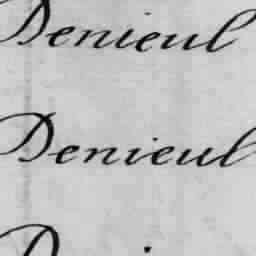 Denieul
Denieul